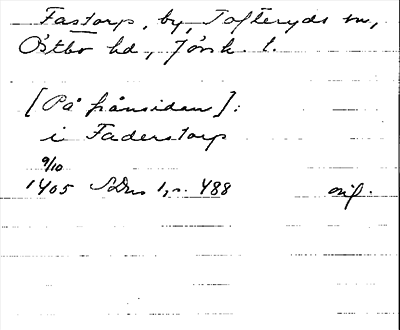 Fastorp, by, Tofteryds sn,
Östbo hd, Jönk. l.
[På frånsidan]:
i Faderstorp
9/10
1405 SDns 1, n. 488 orig.